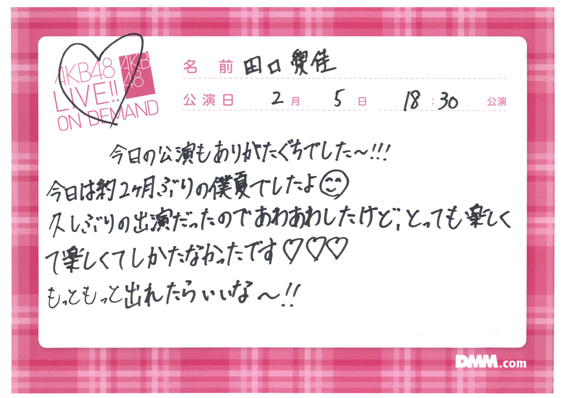 AKB48
LIVE!!
ON DEMAND
AKB
48
名前 田口愛佳
公演日 2月 5日 18:30 公演
今日の公演もありがたぐちでした〜!!!
今日は約2ヶ月ぶりの僕夏でしたよ
久しぶりの出演だったのであわあわしたけど、とっても楽しく
て楽しくてしかたなかったです♡♡♡
もっともっと出れたらいいな〜!!
DMM.com